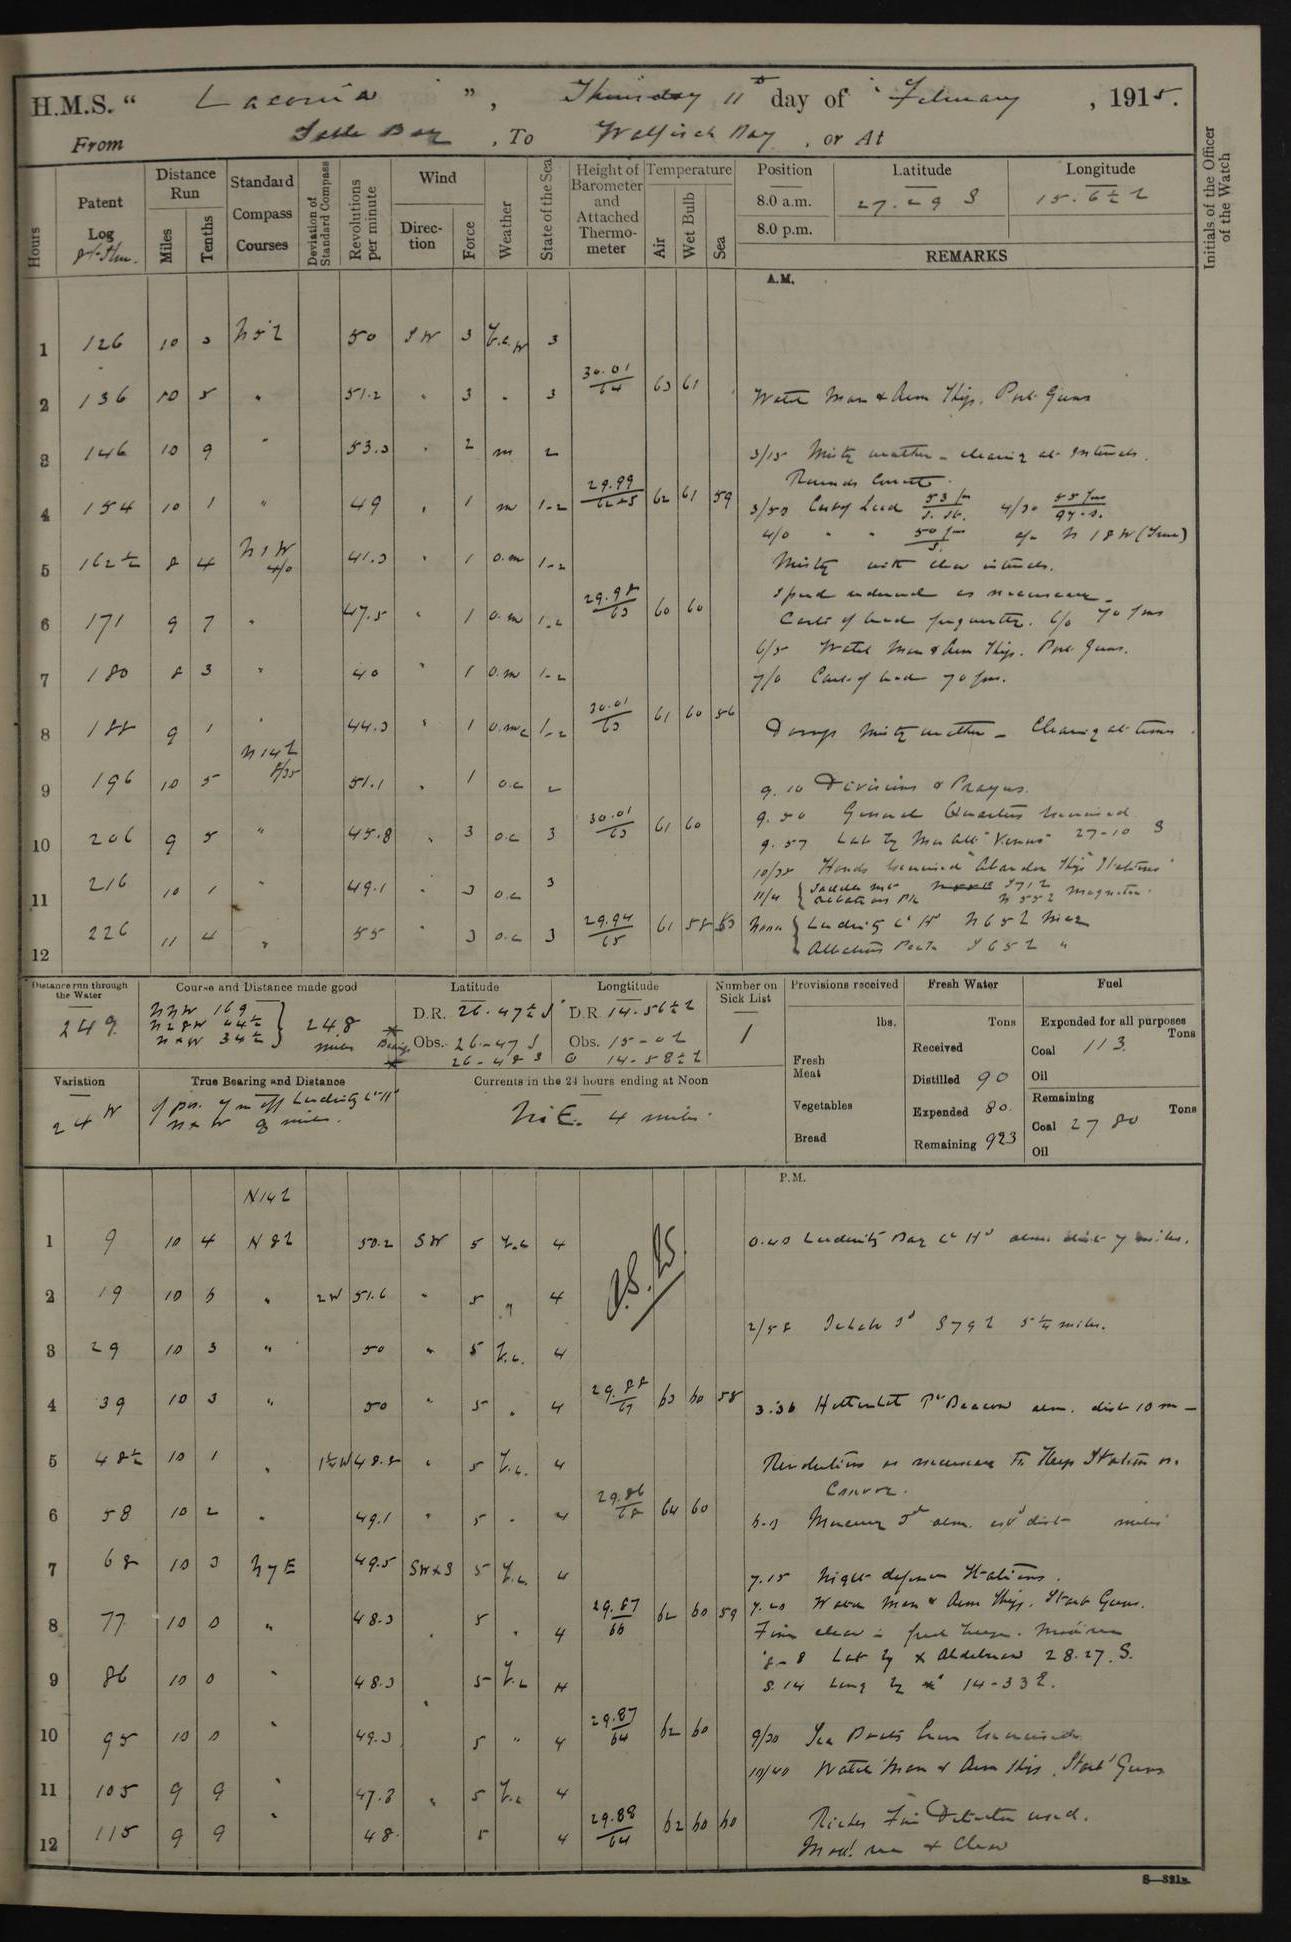 H.M.S. “ Laconia ”, Thursday 11th day of February , 1915.
From Table Bay , To Walfisch Bay , or At
Hours
Patent Log
Distance Run
Miles
Tenths
Standard Compass Courses
Deviation of Standard Compass
Revolutions per minute
Wind
Direction
Force
Weather
State of the Sea
Height of Barometer and Attached Thermometer
Temperature
Air
Wet Bulb
Sea
Position
8.0 a.m.
8.0 p.m.
Latitude
27.29 S
Longitude
15.6½ E
REMARKS
Initials of the Officer of the Watch
A.M.
1 126 10 3 N5E 50 SW 3 b.c.w 3
30.01/64 63 61
2 136 10 5 " 51.2 " 3 " 3 Watch Man & Arm Ship. Port Guns
3 146 10 9 " 53.3 " 2 m 2 3/15 Misty weather - clearing at intervals.
Rounds Correct.
29.99 62 61 59
4 154 10 1 " 49 " 1 m 1-2 3/50 Cast of Lead 53 fm 4/30 55 fms
4/0 " " 50 fm a/c N 18 W (True)
5 162½ 8 4 N1W 4/0 41.3 " 1 o.m 1-2 Misty with clear intervals.
29.98/63 60 60 Speed reduced as necessary.
6 171 9 7 " 47.5 " 1 o.m 1-2 Casts of lead frequently. 6/0 70 fms
6/5 Watch Man & Arm Ship. Port Guns.
7 180 8 3 " 40 " 1 o.m 1-2 7/0 Cast of lead 70 fms.
30.01/63 61 60 56
8 188 9 1 " 44.3 " 1 o.m.c 1-2 Damp misty weather - Clearing at times.
N14E 8/35
9 196 10 5 51.1 " 1 o.c 2 9.10 Divisions & Prayers.
30.01/63 61 60 9.50 General Quarters exercised
10 206 9 5 " 45.8 " 3 o.c 3 9.57 Lat by Mer Alt "Venus" 27-10 S
10/35 Hands exercised "Abandon Ship Stations"
11 216 10 1 " 49.1 " 3 o.c 3 11/4 { Saddle S71E
N 55 E Magnetic.
29.94/65 61 58 53 Noon { Luderitz Lt Ho N65E Mag
12 226 11 4 " 55 " 3 o.c 3 Albatross Rock S65E "
Distance run through the Water
249
Course and Distance made good
NNW 169
N28W 44½
NxW 34½
248 miles
Latitude
D.R. 26.47½ S
Obs. 26-47 S
26-48 S
Longtitude
D.R. 14.56½ E
Obs. 15-02
14-58½ E
Number on Sick List
1
Provisions received
lbs.
Fresh Meat
Vegetables
Bread
Fresh Water
Tons
Received
Distilled 90
Expended 80.
Remaining 923
Fuel
Expended for all purposes
Tons
Coal 113.
Oil
Remaining
Tons
Coal 2780
Oil
Variation
24 W
True Bearing and Distance
of pos. off Luderitz Lt Ho
NxW 8 miles.
Currents in the 24 hours ending at Noon
N.E. 4 miles.
P.M.
N14E
1 9 10 4 N8E 50.2 SW 5 b.c 4 0.40 Luderitz Bay Lt Ho abm dist 7 miles.
2 19 10 5 " 2W 51.6 " 5 " 4
2/58 Ichabo Id S79E 5¼ miles.
3 29 10 3 " 50 " 5 b.c. 4
29.88/67 63 60 58
4 39 10 3 " 50 " 5 " 4 3.36 Hottentot Pt Beacon abm. dist 10 m -
5 48½ 10 1 " 1½W 48.8 " 5 b.c. 4 Revolutions as necessary to Keep Station on
Convoy.
29.86/68 64 60
6 58 10 2 " 49.1 " 5 " 4 Mercury Id abm. estd dist miles
7 68 10 3 N7E 49.5 SWxS 5 b.c. 4 7.15 Night defence Stations.
29.87/66 62 60 59 7.20 Watch Man & Arm Ship. Starb Guns.
8 77 10 0 " 48.3 " 5 " 4 Fine clear
8-8 Lat by x Aldebaran 28.27.S.
9 86 10 0 " 48.3 5 b.c 4 8.14 Long by x 14-33E.
29.87/64 62 60
10 95 10 0 " 49.3 " 5 " 4 9/30 Sea Boats Crew exercised
10/40 Watch Man & Arm Ship. Starbd Guns
11 105 9 9 " 47.8 " 5 b.c 4
29.88/64 62 60 60 Riches Fire Detector used.
12 115 9 9 " 48. 5 4 Mod. sea & Clear
S—321B.